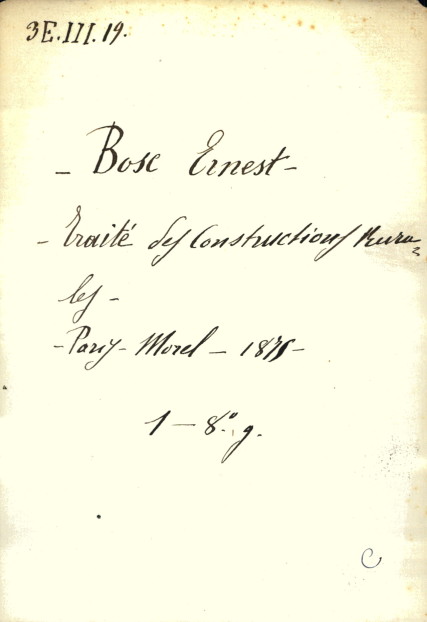 3E.III.19.
- Bosc Ernest -
- Traité des Constructions Rura=
les -
- Paris - Morel - 1875 -
1 - 8.° g.
C